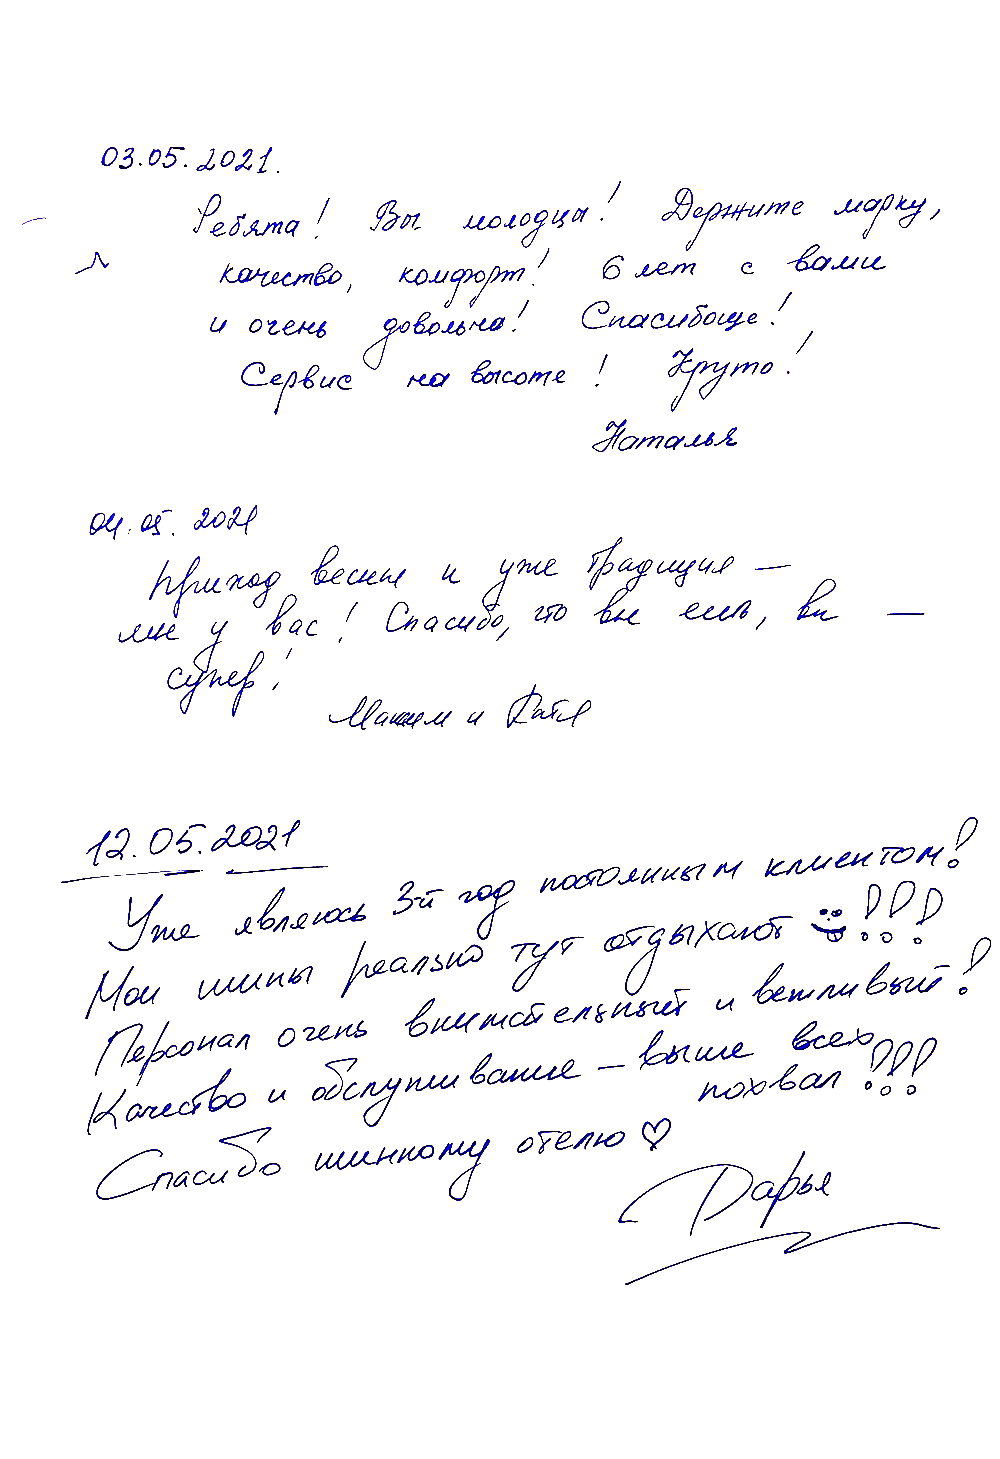 03.05.2021.
Ребята! Вы молодцы! Держите марку,
качество, комфорт! 6 лет с вами
и очень довольна! Спасибоще!
Сервис на высоте! Круто!
Наталья
04.05.2021
Приход весны и уже традиция —
мы у вас! Спасибо, что вы есть, вы —
супер!
Максим и Катя
12.05.2021
Уже являюсь 3-й год постоянным клиентом!
Мои шины реально тут отдыхают !!!
Персонал очень внимательный и вежливый!
Качество и обслуживание – выше всех
похвал!!!
Спасибо шинному отелю ♡
Дарья